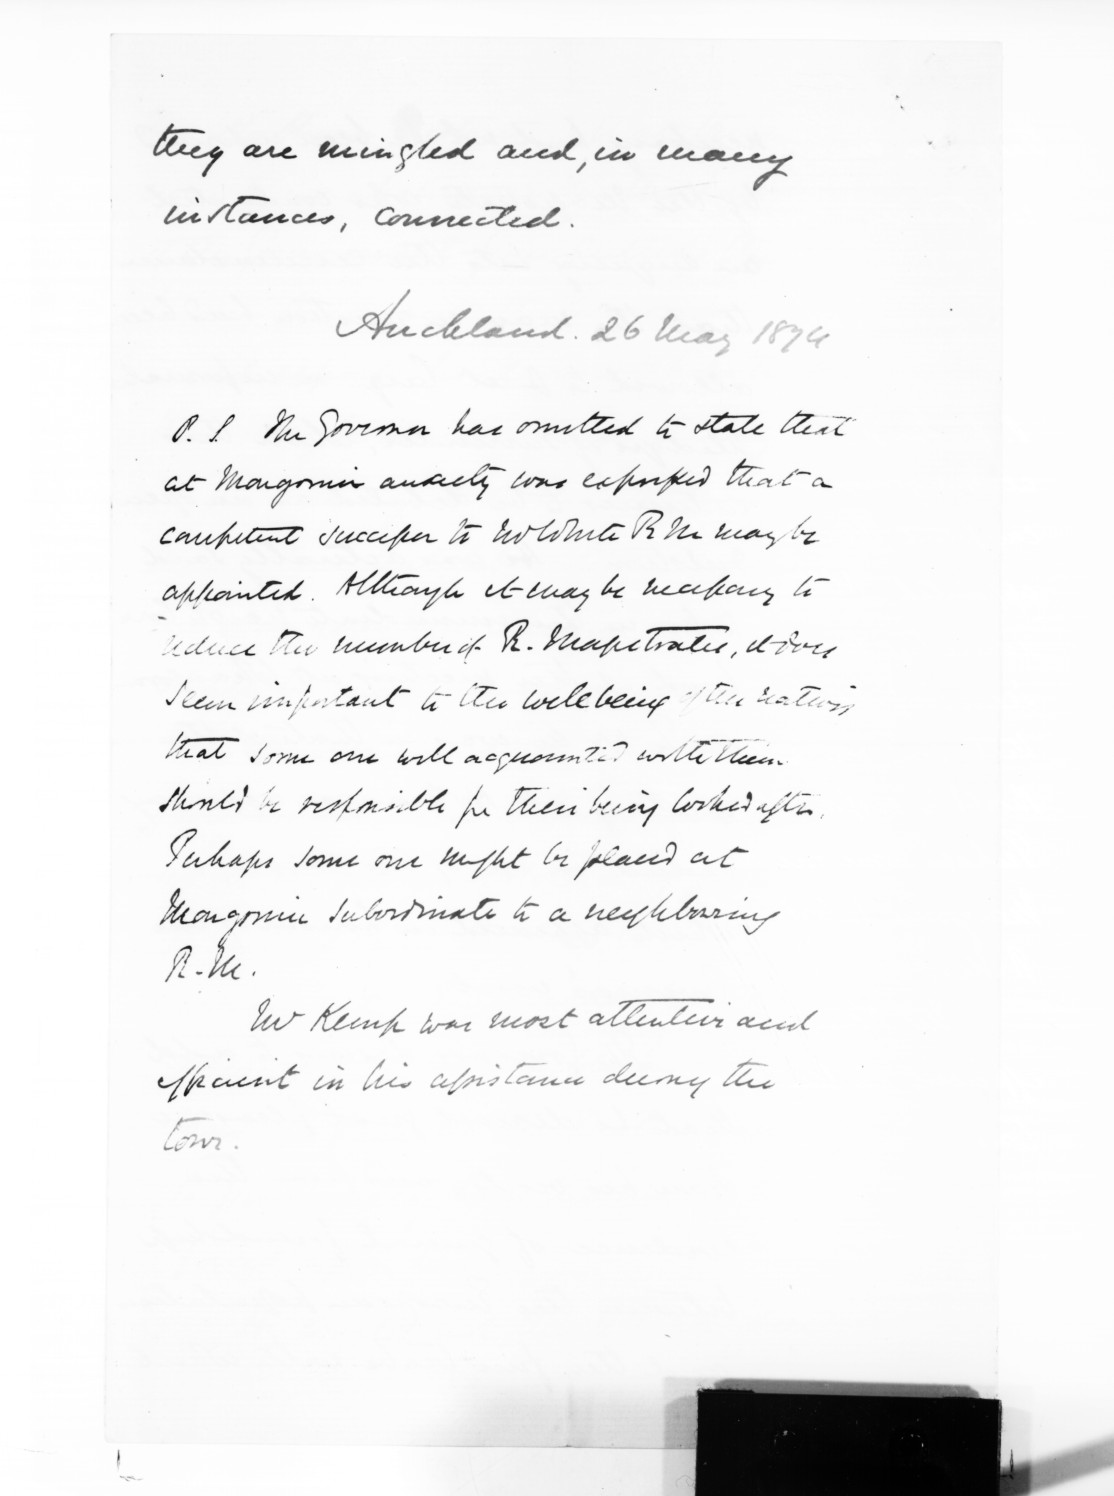 they are mingled and, in many
instances, connected.
Auckland. 26 May 1874
P.S. The Governor has omitted to state that
at Mongonui anxiety was expressed that a
competent successor to Mr White R M may be
appointed. Although it may be necessary to
reduce the number of R. Magistrates, it does
seem important to the well being of the natives
that some one well acquainted with them
should be responsible for their being looked after.
Perhaps some one might be placed at
Mongonui subordinate to a neighbouring
R.M.
Mr Kemp was most attentive and
efficient in his assistance during the
tour.